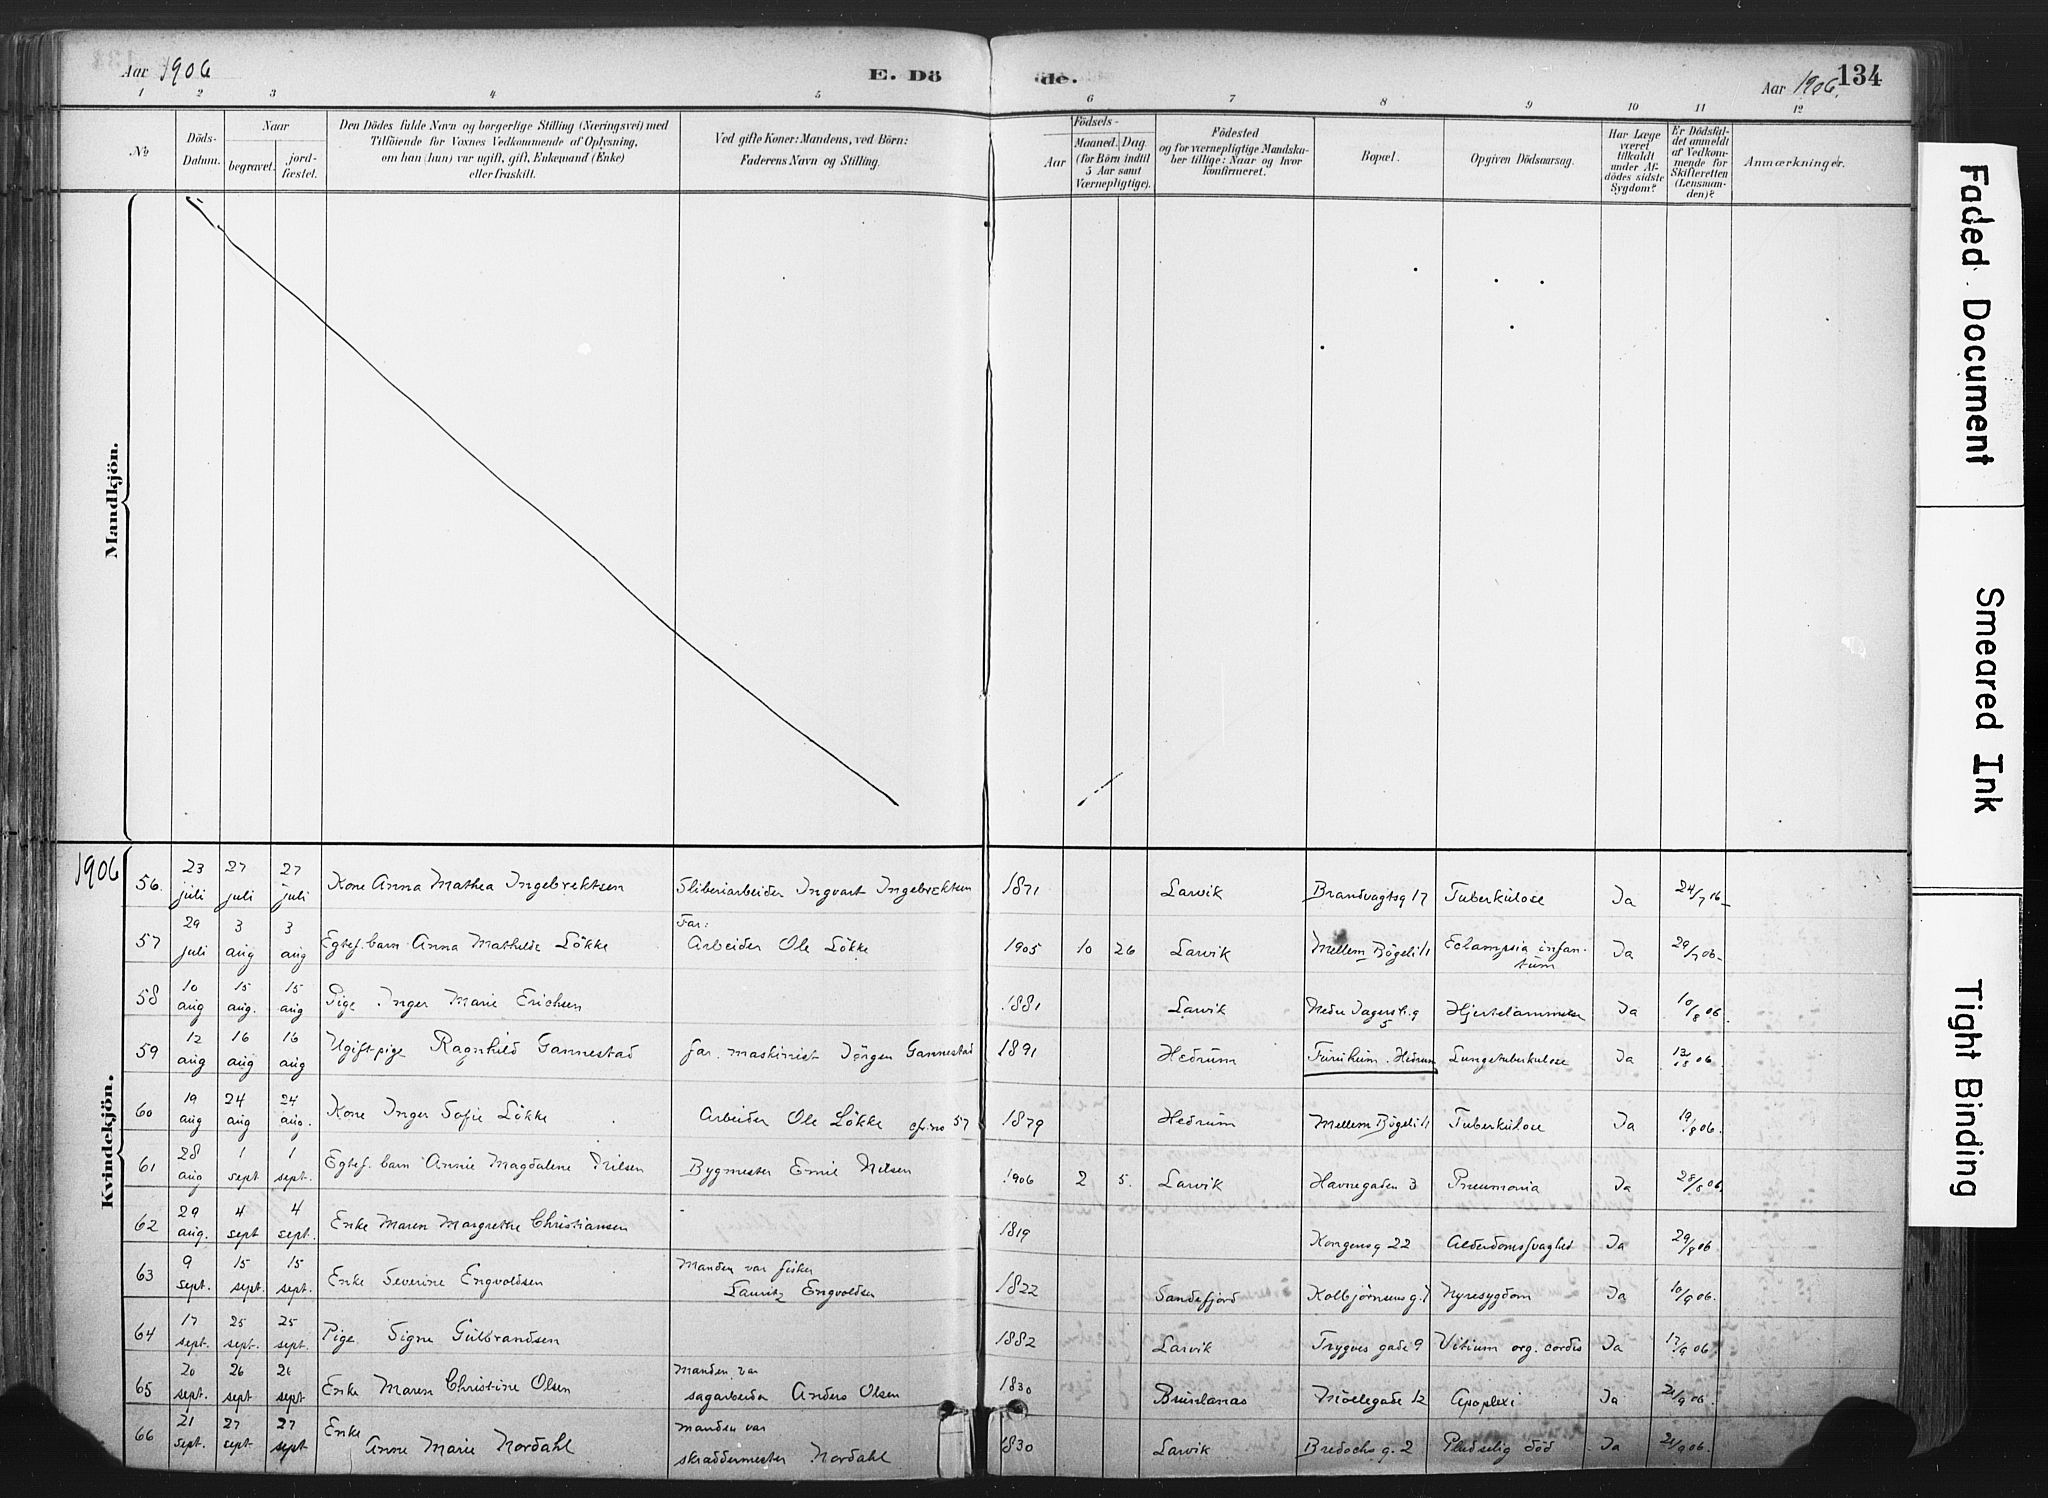 Aar 1906
E. Dö de.
Aar 1906.
134
1 2 3 4 5 6 7 8 9 10 11 12
No
Döds-Datum.
Naar
begravet.
jord-fæstet.
Den Dödes fulde Navn og borgerlige Stilling (Næringsvei) med
Tilföiende for Voxnes Vedkommende af Oplysning,
om han (hun) var ugift, gift, Enkemand (Enke)
eller fraskilt.
Ved gifte Koner: Mandens, ved Börn:
Faderens Navn og Stilling.
Födsels-
Aar
Maaned. Dag.
(for Börn indtil
5 Aar samt
Værnepligtige).
Födested
og for værnepligtige Mandska-
ber tillige: Naar og hvor
konfirmeret.
Bopæl.
Opgiven Dödsaarsag.
Har Læge
været
tilkaldt
under Af-
dödes sidste
Sygdom?
Er Dödsfal-
det anmeldt
af Vedkom-
mende for
Skifteretten
(Lensman-
den)?
Anmærkninger.
Mandkjön.
Kvindekjön.
1906
56. 23 juli 27 juli 27 juli Kone Anna Mathea Ingebrektsen Sliberiarbeider Ingvart Ingebrektsen 1871 Larvik Brandvagtsg 17 Tuberkulose Ja 24/7 06
57 29 juli 3 aug 3 aug Egtef. barn Anna Mathilde Lökke Far: Arbeider Ole Lökke 1905 10 26 Larvik Mellem Bögeli 11 Eclampsia infan-
tum Ja 29/7 06
58 10 aug 15 aug. 15 aug Pige Inger Marie Erichsen 1881 Larvik Nedre Jegersb.g 5 Hjertelammelse Ja 10/8 06.
59 12 aug 16 aug 16 aug Ugift pige Ragnhild Gannestad far. maskinist Jörgen Gannestad 1891 Hedrum Furuheim. Hedrum Lungetuberkulose Ja 13/8 06.
60 19 aug 24 aug 24 aug. Kone Inger Sofie Lökke Arbeider Ole Lökke cfr. no 57 1879 Hedrum Mellem Bögeli 11 Tuberkulose Ja 19/8 06.
61 28 aug 1 sept 1 sept. Egtef. barn Annie Magdalene Nilsen Bygmester Emil Nilsen 1906 2 5. Larvik Havnegaden 3 Pneumonia Ja 28/8 06.
62 29 aug. 4 sept 4 sept. Enke Maren Margrethe Christiansen 1819 Kongensg 22 Alderdomssvaghed Ja 29/8 06
63 9 sept. 15 sept. 15 sept. Enke Severine Engvoldsen Manden var fisker Lauritz Engvoldsen 1822 Sandefjord Kolbjörnsensg. 7 Nyresygdom Ja 10/9 06.
64 17 sept. 25 sept. 25 sept. Pige Signe Gulbrandsen 1882 Larvik Trygves gade 9 Vitium org. cordis Ja 17/9 06.
65 20 sept. 26 sept 26 sept Enke Maren Christine Olsen Manden var sagarbeider Anders Olsen 1830 Brunlanæs Möllegade 12 Apoplexi Ja 21/9 06.
66 21 sept. 27 sept 27 sept Enke Anne Marie Nordahl Manden var skræddermester Nordahl 1830 Larvik Bredochs g. 2 Pludselig död Ja 21/9 06.
Faded Document
Smeared Ink
Tight Binding